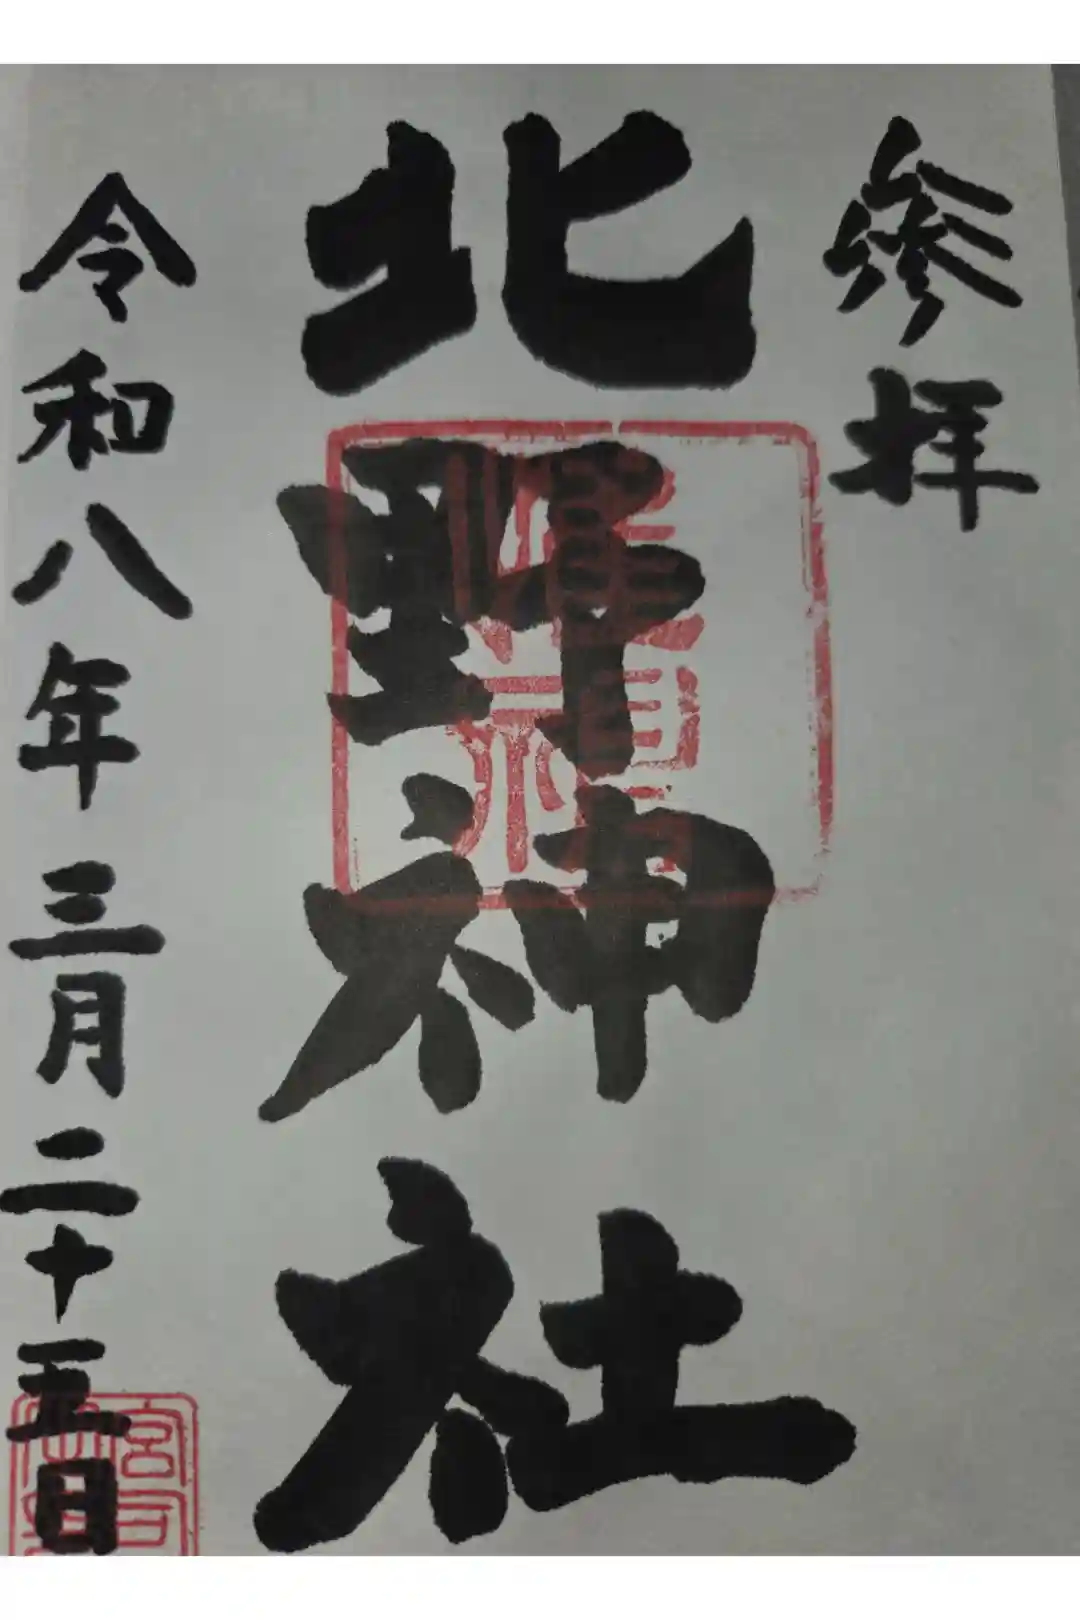 参拝
北野神社
令和八年三月二十五日
宮司